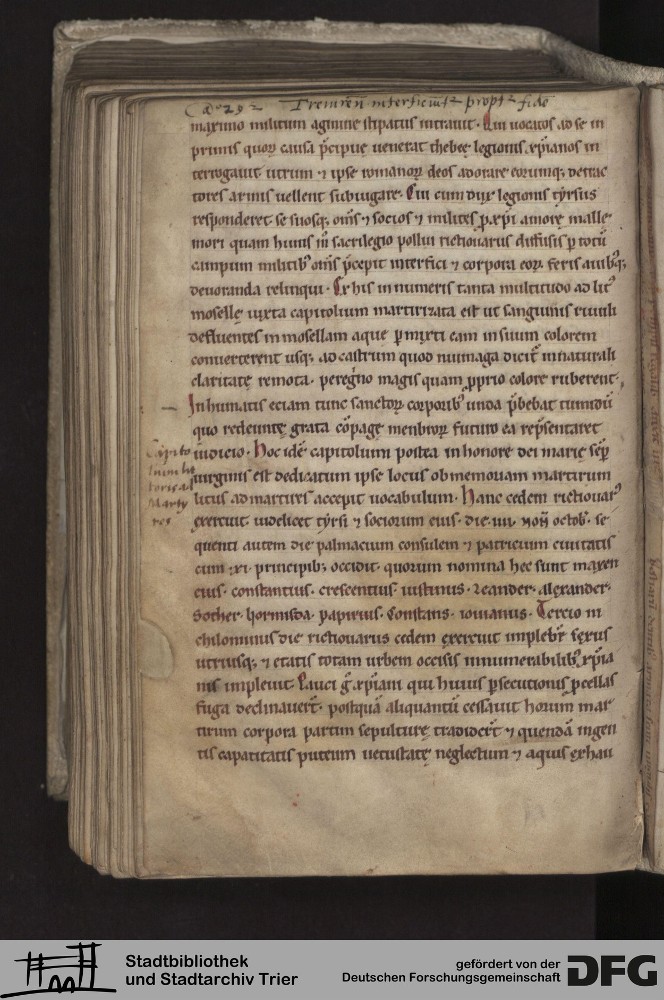 Aº 292 Treviren̄ interficiūt᷑ propt᷑ fidē
maximo militum agmine stipatus intrauit. Qui uocatos ad se in
primis quoꝝ causa p̄cipue uenerat thebeę legionis xp̄ianos in
terrogauit utrum ⁊ ipse romanoꝝ deos adorare eorumq; detrac
tores armis uellent subiugare. Cui cum dux legionis tẏrsus
responderet se suosq; om̄s ⁊ socios ⁊ milites p xp̄i amorę malle
mori quam huius m̄ sacrilegio pollui rictiouarus diffusis p totū
campum militib᷒ om̄s p̄cepit interfici ⁊ corpora eoꝝ feris auibꝰq;
deuoranda relinqui. Ex his innumeris tanta multitudo ad litꝰ
mosellę iuxta capitolium martirizata est ut sanguinis riuuli
defluentes in mosellam aque pmixti eam in suum colorem
conuerterent usq; ad castrum quod nuimaga dicit᷑ innaturali
claritatę remota. peregⁱno magis quam pprio colore ruberent.
Inhumatis eciam tunc sanctoꝝ corporibꝰ unda p̄bebat tumulū
quo redeuntę grata cōpagę menbroꝝ futuro ea rep̄sentaret
iudicio. Hoc idē capitolium postea in honore dei marię sēp
uirginis est dedicatum ipse locus ob memoriam martirum
litus ad martires accepit uocabulum. Hanc cedem rictiouarꝰ
exercuit. uidelicet tẏrsi ⁊ sociorum eius. die .iiii. non̄ octob᷒. se
quenti autem die palmacium consulem ⁊ patricium ciuitatis
cum .xi. principib; occidit. quorum nomina hec sunt maxen
cius. constantius. crescentius. iustinus. leander. alexander.
Sother. hormisda. papirius. Constans. iouianus. Tercio ni
chilominus die rictiouarus cedem exercuit implebr̄ sexus
utriusq; ⁊ etatis totam urbem occisis innumerabilibꝰ xp̄ia
nis impleuit. Pauci ḡ xp̄iani qui huius psecutionis pcellas
fuga declinauerᷓt. postquā aliquantū cessauit horum mar
tirum corpora partim sepulturę tradiderᷓt ⁊ quendā ingen
tis capatitatis puteum uetustatę neglectum ⁊ aquis exhau
Capito
lium lit
toris ad
Marty
res
Stadtbibliothek
und Stadtarchiv Trier
gefördert von der
Deutschen Forschungsgemeinschaft
DFG